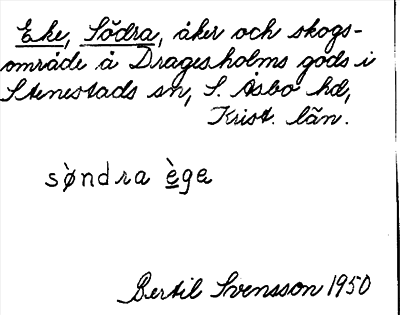 Eke, Södra, åker och skogs-
område å Dragesholms gods i
Stenestads sn, S. Åsbo hd,
Krist. län.
sø̀ndra è̱ge
Bertil Svensson 1950